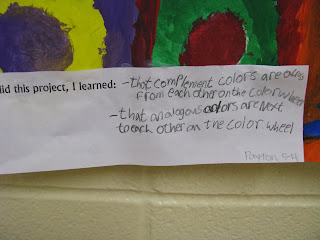 did this project, I learned: -that complement colors are across
from each other on the color wheel
-that analogous colors are next
to each other on the color wheel
Payton 5-H